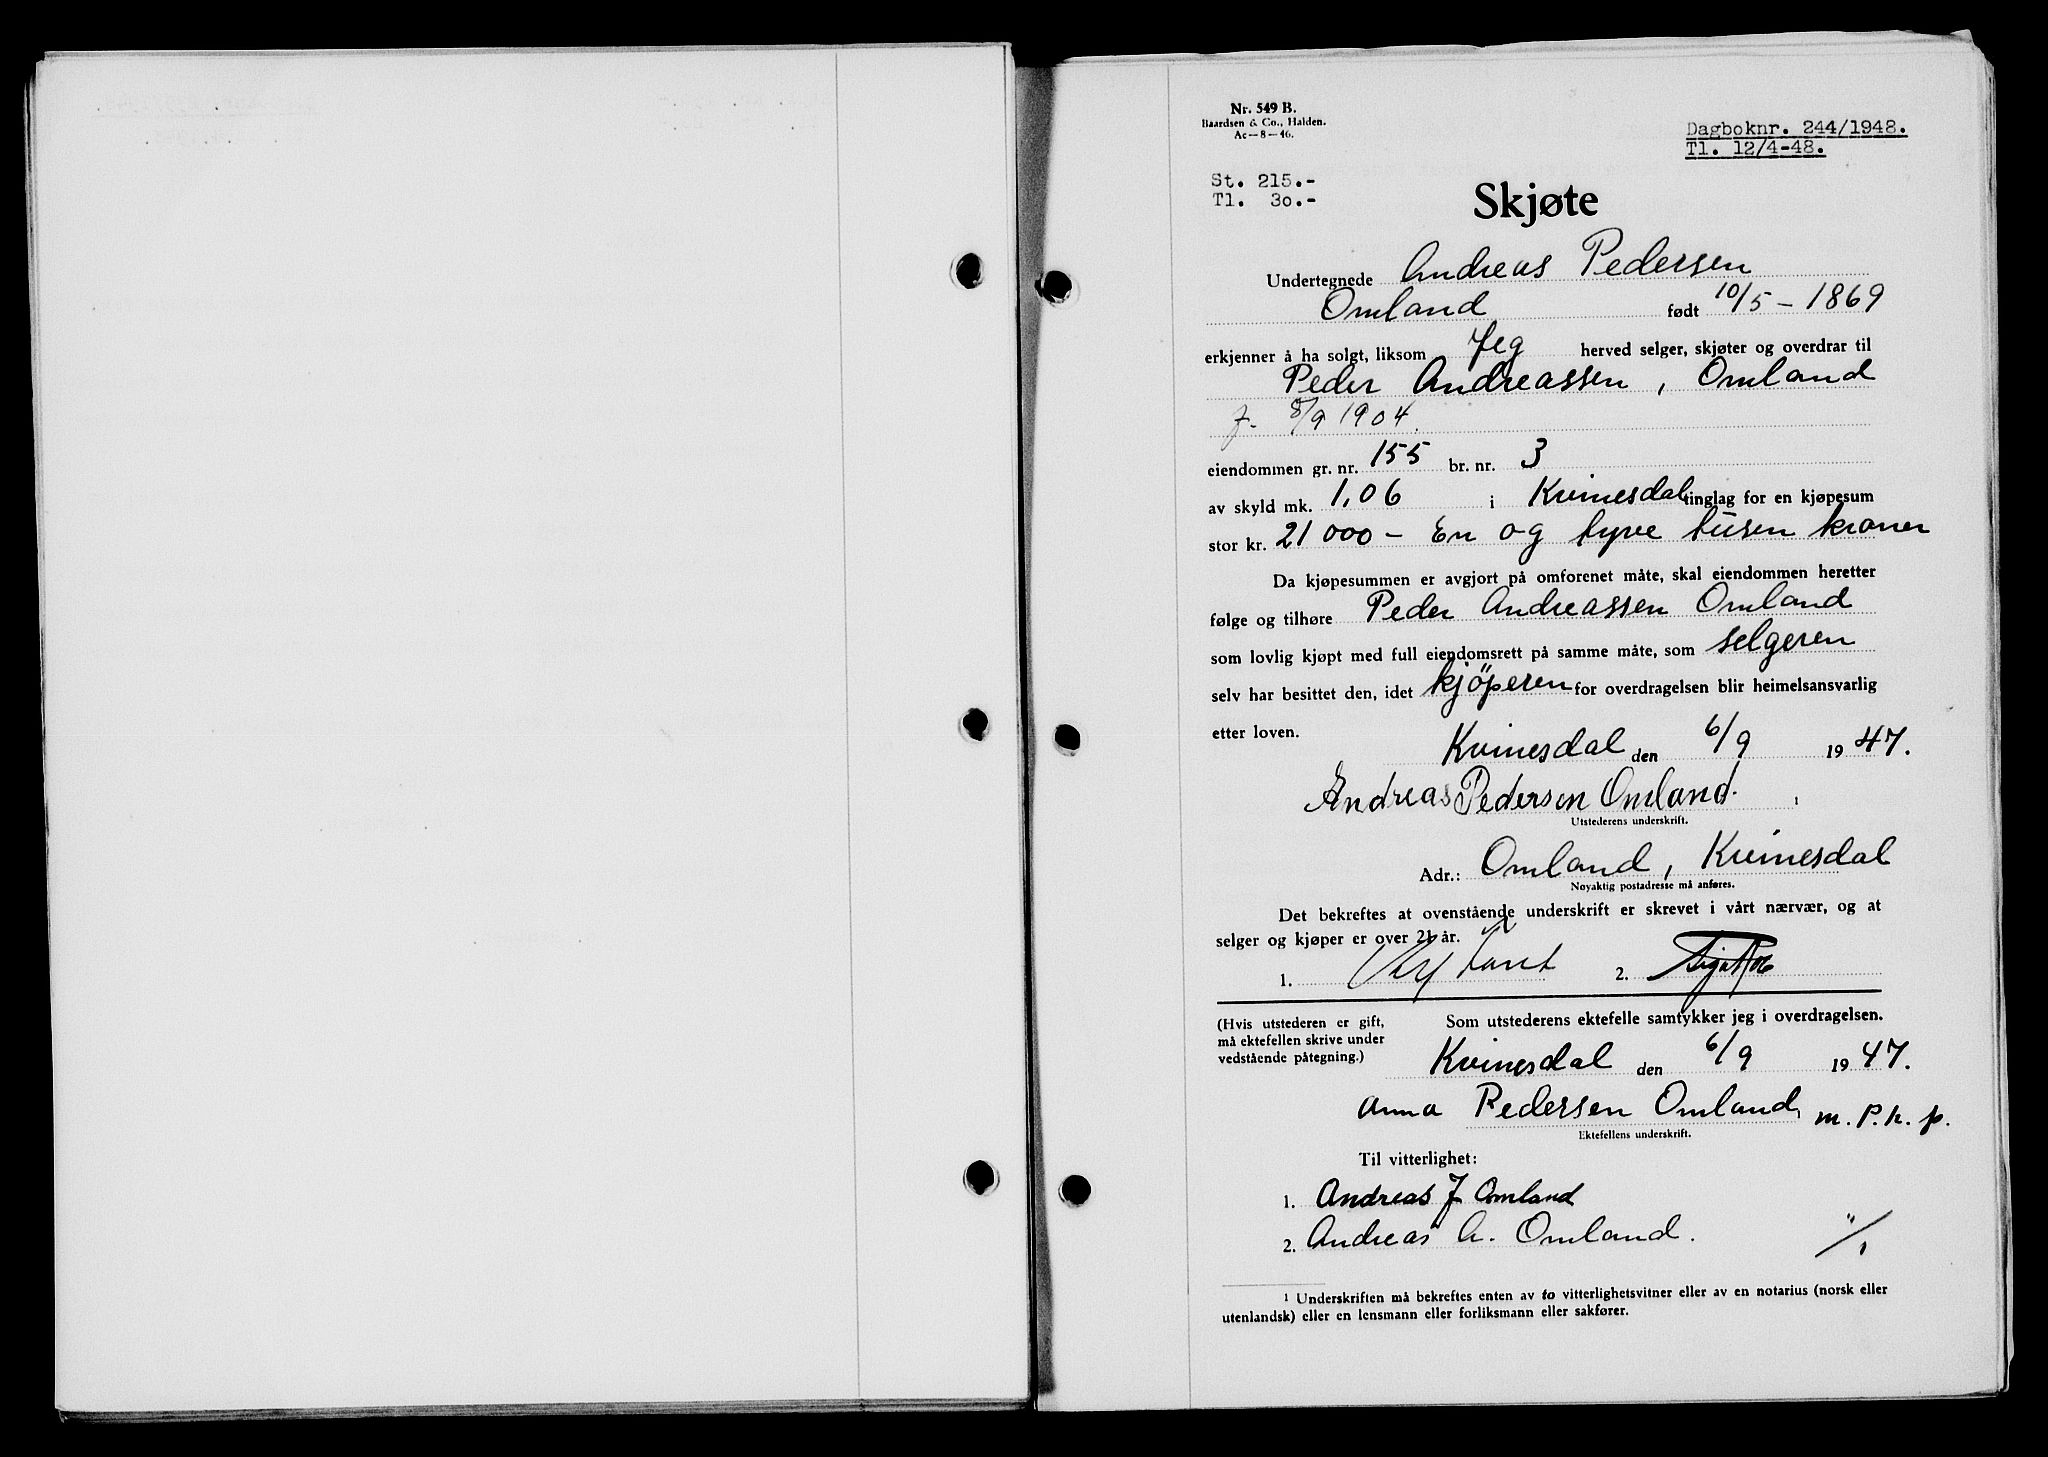 Nr. 549 B.
Baardsen & Co., Halden.
Ac—8—46.
Dagboknr. 244/1948.
Tl. 12/4-48.
St. 215.-
Tl. 30.-
Skjøte
Undertegnede Andreas Pedersen
Omland født 10/5 - 1869
erkjenner å ha solgt, liksom Jeg herved selger, skjøter og overdrar til
Peder Andreassen, Omland
f. 8/9 1904.
eiendommen gr. nr. 155 br. nr. 3
av skyld mk. 1,06 i Kvinesdal tinglag for en kjøpesum
stor kr. 21 000 - En og tyve tusen kroner
Da kjøpesummen er avgjort på omforenet måte, skal eiendommen heretter
følge og tilhøre Peder Andreassen Omland
som lovlig kjøpt med full eiendomsrett på samme måte, som selgeren
selv har besittet den, idet kjöperen for overdragelsen blir heimelsansvarlig
etter loven.
Kvinesdal den 6/9 1947.
Andreas Pedersen Omland.
Utstederens underskrift.
Adr.: Omland, Kvinesdal
Nøyaktig postadresse må anføres.
Det bekreftes at ovenstående underskrift er skrevet i vårt nærvær, og at
selger og kjøper er over 21 år.
1. 2.
(Hvis utstederen er gift, Som utstederens ektefelle samtykker jeg i overdragelsen.
må ektefellen skrive under
vedstående påtegning.)
Kvinesdal den 6/9 1947.
Anna Pedersen Omland, m. P. h. p.
Ektefellens underskrift.
Til vitterlighet:
1. Andreas J Omland
2. Andreas A. Omland.
1 Underskriften må bekreftes enten av to vitterlighetsvitner eller av en notarius (norsk eller
utenlandsk) eller en lensmann eller forliksmann eller sakfører.